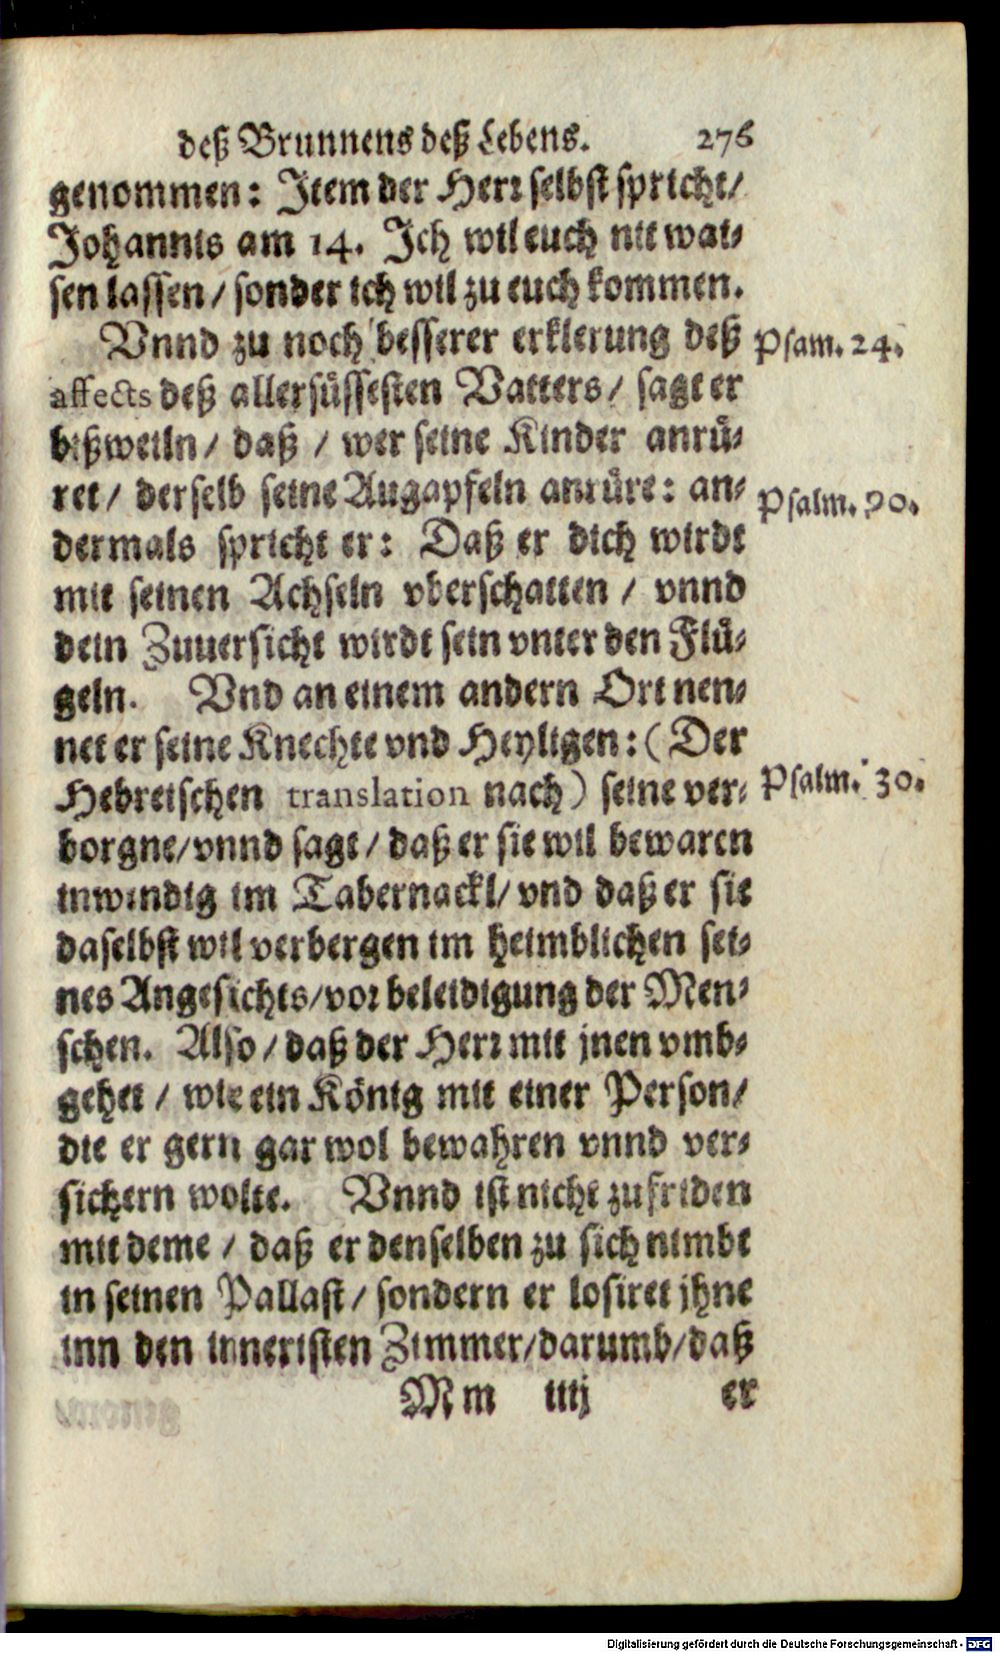 deß Brunnens deß Lebens. 276
genommen: Item der Herr selbst spricht/
Johannis am 14. Ich wil euch nit wai-
sen lassen/ sonder ich wil zu euch kommen.
Vnnd zu noch besserer erklerung deß
Psam. 24.
affects deß allersüssesten Vatters/ sagt er
bißweiln/ daß/ wer seine Kinder anrü-
ret/ derselb seine Augapfeln anrüre: an-
Psalm. 90.
dermals spricht er: Daß er dich wirdt
mit seinen Achseln vberschatten/ vnnd
dein Zuuersicht wirdt sein vnter den Flü-
geln. Vnd an einem andern Ort nen-
net er seine Knechte vnd Heyligen: (Der
Hebreischen translation nach) seine ver-
Psalm. 30.
borgne/ vnnd sagt/ daß er sie wil bewaren
inwendig im Tabernackl/ vnd daß er sie
daselbst wil verbergen im heimblichen sei-
nes Angesichts/ vor beleidigung der Men-
schen. Also/ daß der Herr mit jnen vmb-
gehet/ wie ein König mit einer Person/
die er gern gar wol bewahren vnnd ver-
sichern wolte. Vnnd ist nicht zufriden
mit deme/ daß er denselben zu sich nimbt
in seinen Pallast/ sondern er losiret jhne
inn den inneristen Zimmer/ darumb/ daß
Mm iiij er
Digitalisierung gefördert durch die Deutsche Forschungsgemeinschaft - DFG